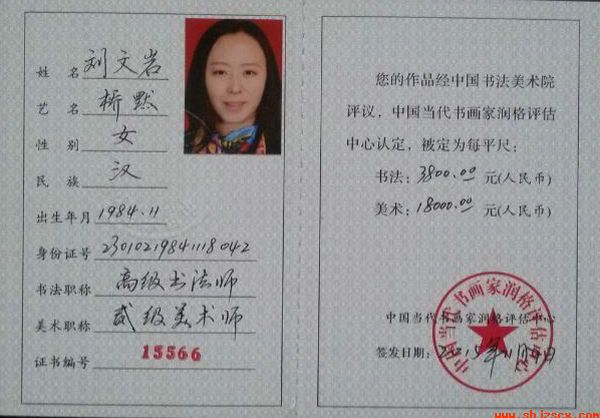 姓 名 刘文岩
艺 名 桥默
性 别 女
民 族 汉
出生年月 1984.11
身份证号 23010219841118042
书法职称 高级书法师
美术职称 贰级美术师
证书编号 15566
您的作品经中国书法美术院
评议，中国当代书画家润格评估
中心认定，被定为每平尺：
书法：3800.00 元(人民币)
美术：18000.00 元(人民币)
中国当代书画家润格评估中心
中国当代书画家润格评估中心
签发日期：2015年11月9日